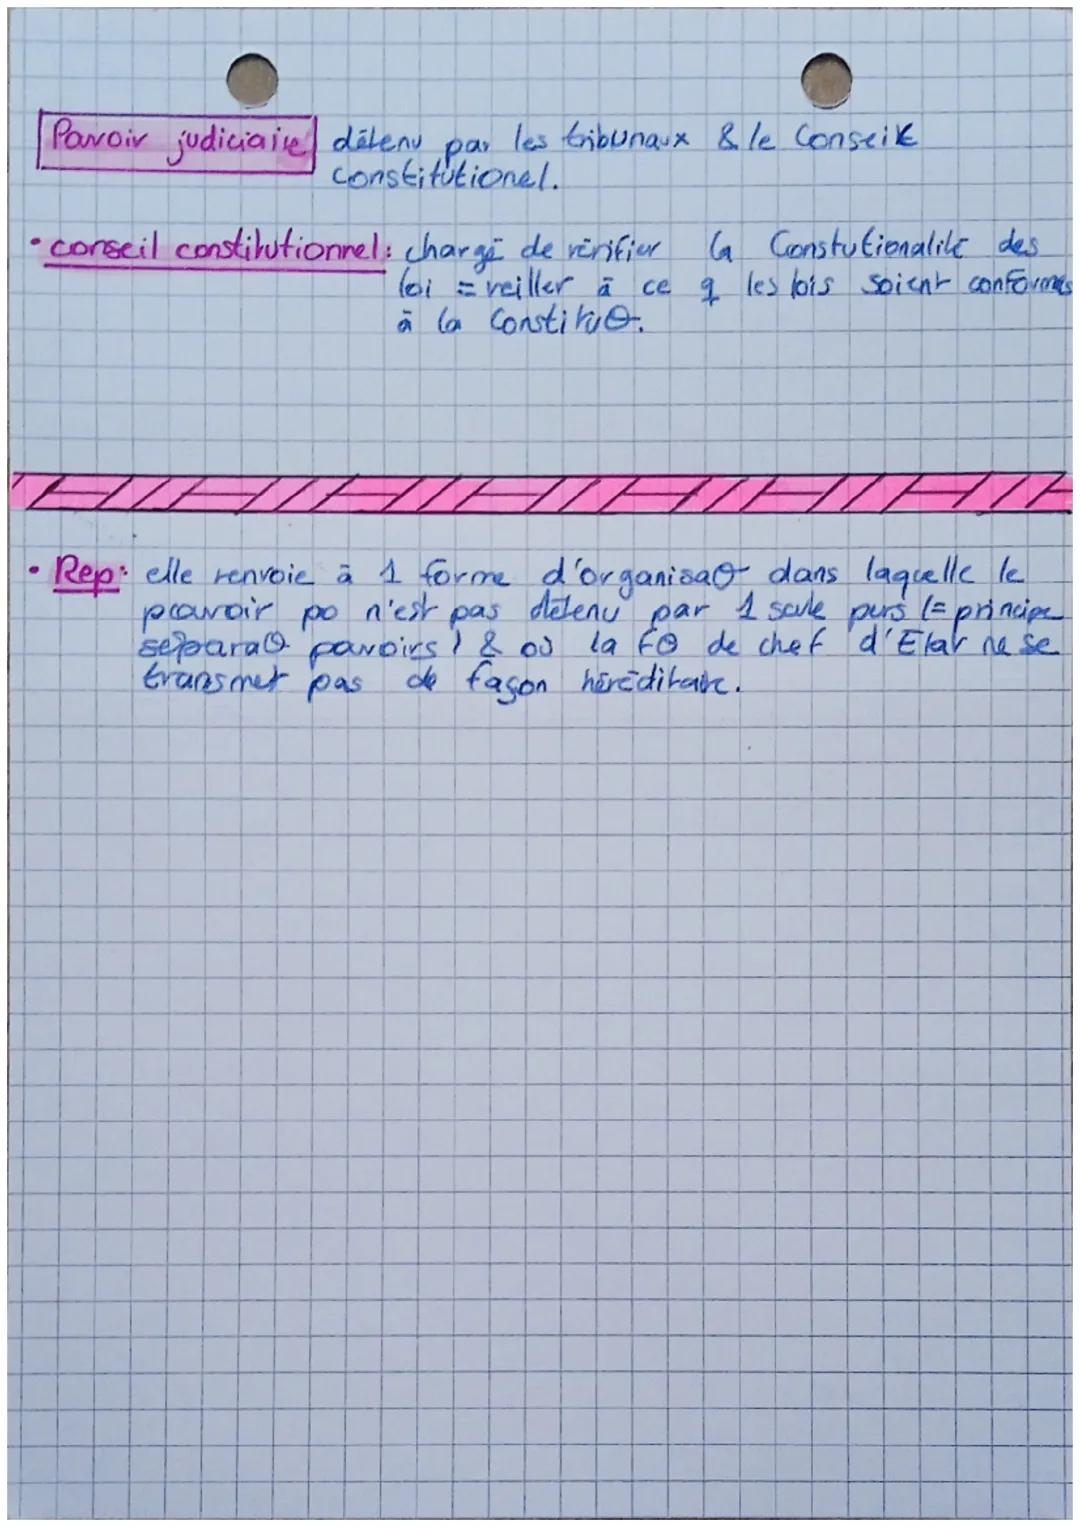 Pouvoir judiciaire détenu par les tribunaux & le Conseil
Constitutionel.
• conseil constitutionnel: chargé de vérifier la Constutionalité des
loi = veiller à ce q les lois soient conformes
à la ConstituƟ.
• Rep: elle renvoie à 1 forme d'organisaƟ dans laquelle le
pouvoir po n'est pas détenu par 1 seule pers (= principe
séparaƟ pouvoirs) & où la fƟ de chef d'Etat ne se
transmet pas de façon héréditaire.